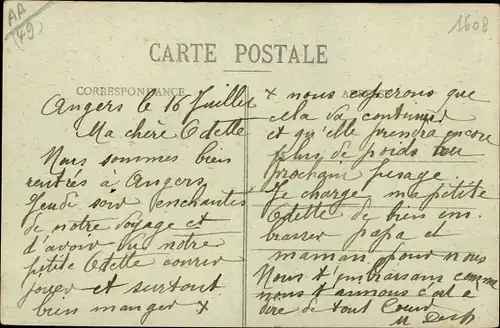 AA
(49)
1608
CARTE POSTALE
CORRESPONDANCE
Angers le 16 Juillet
Ma chère Odette
Nous sommes bien
rentrés à Angers
Jeudi soir enchantés
de notre voyage et
d'avoir vu notre
petite Odette courir
jouer et surtout
bien manger x
x nous esperons que
cela va continuer
et qu'elle prendra encore
plus de poids au
prochain pesage.
Je charge ma petite
Odette de bien em
brasser papa et
maman pour nous
Nous t'embrassons comme
nous t'aimons c'est à
dire de tout Coeur
M